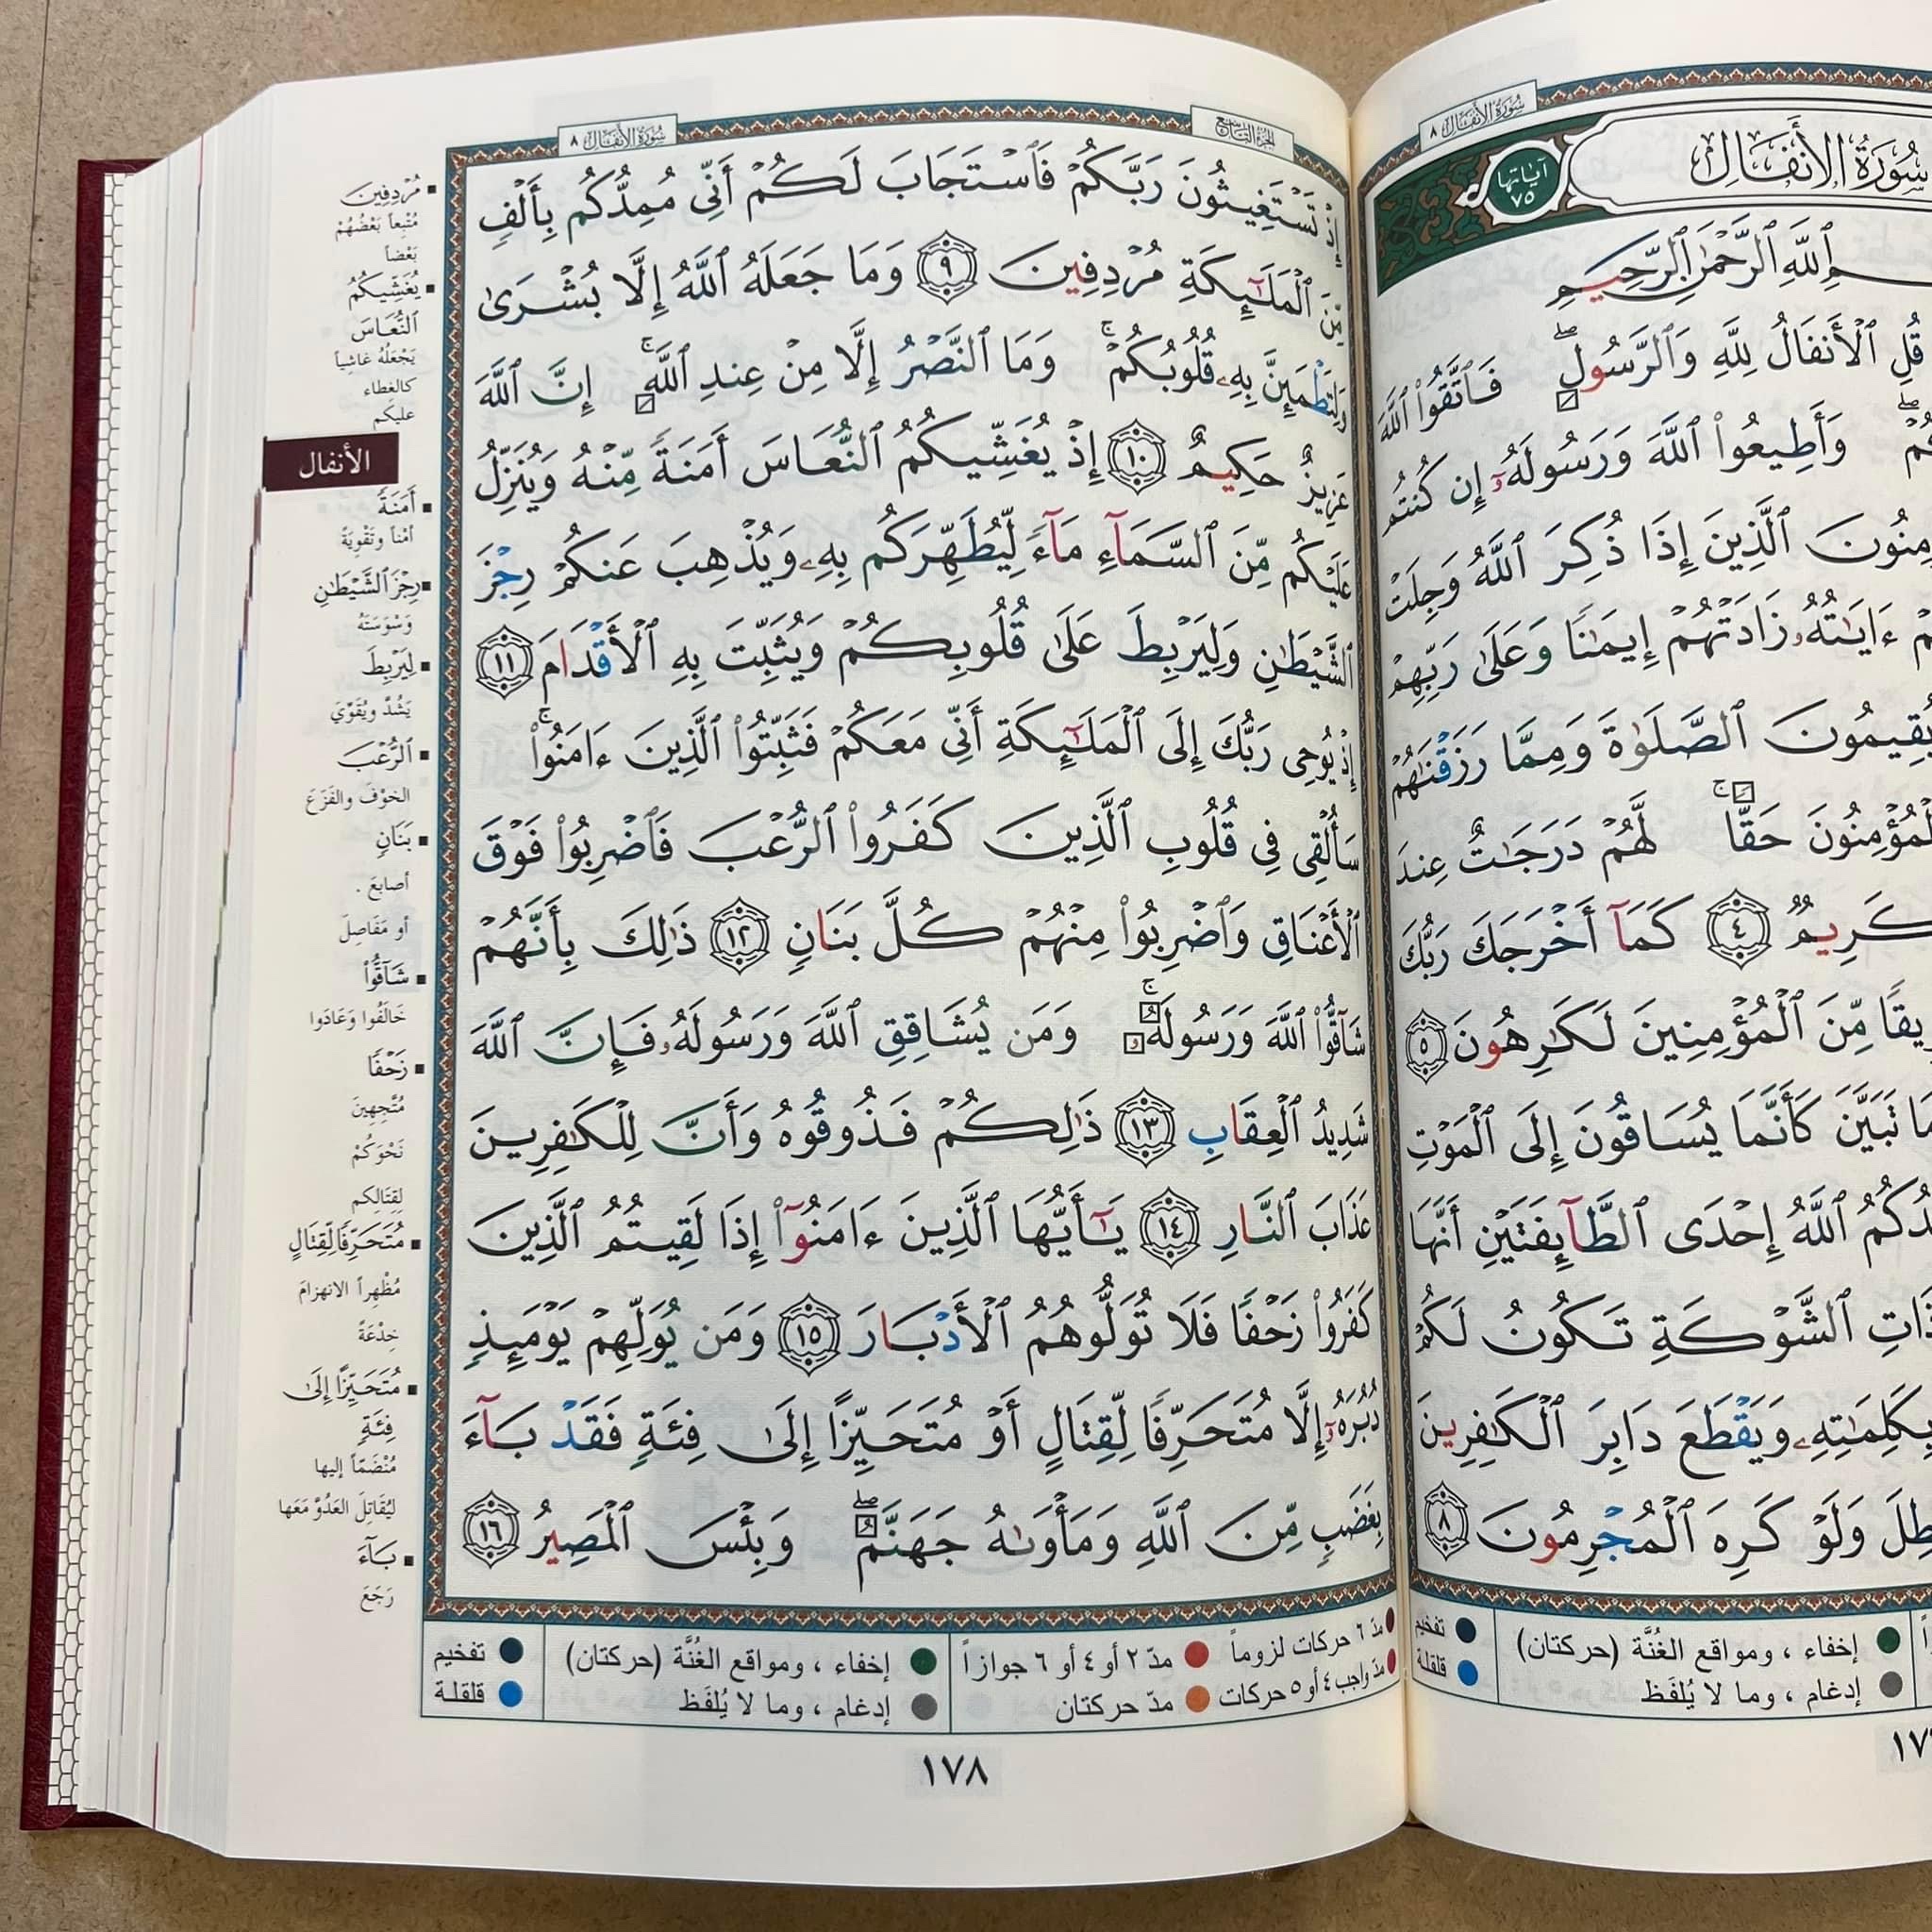 سُورَةُ الأَنفَال ٨
سُورَةُ الأَنفَال
آياتها
٧٥
ٱللَّهِ ٱلرَّحْمَٰنِ ٱلرَّحِيمِ
قُلِ ٱلْأَنفَالُ لِلَّهِ وَٱلرَّسُولِ ۖ فَٱتَّقُوا۟ ٱللَّهَ
وَأَطِيعُوا۟ ٱللَّهَ وَرَسُولَهُۥٓ إِن كُنتُم
ٱلَّذِينَ إِذَا ذُكِرَ ٱللَّهُ وَجِلَتْ
ءَايَٰتُهُۥ زَادَتْهُمْ إِيمَٰنًا وَعَلَىٰ رَبِّهِمْ
يُقِيمُونَ ٱلصَّلَوٰةَ وَمِمَّا رَزَقْنَٰهُمْ
حَقًّا ۚ لَّهُمْ دَرَجَٰتٌ عِندَ
كَرِيمٌ ٤ كَمَآ أَخْرَجَكَ رَبُّكَ
مِّنَ ٱلْمُؤْمِنِينَ لَكَٰرِهُونَ ٥
تَبَيَّنَ كَأَنَّمَا يُسَاقُونَ إِلَى ٱلْمَوْتِ
ٱللَّهُ إِحْدَى ٱلطَّآئِفَتَيْنِ أَنَّهَا
ذَاتِ ٱلشَّوْكَةِ تَكُونُ لَكُمْ
بِكَلِمَٰتِهِۦ وَيَقْطَعَ دَابِرَ ٱلْكَٰفِرِينَ
وَلَوْ كَرِهَ ٱلْمُجْرِمُونَ ٨
إخفاء ، ومواقع الغُنَّة (حركتان)
إدغام ، وما لا يُلفَظ
تفخيم
قلقلة
الجزء التاسع
سُورَةُ الأَنفَال ٨
إِذْ تَسْتَغِيثُونَ رَبَّكُمْ فَٱسْتَجَابَ لَكُمْ أَنِّى مُمِدُّكُم بِأَلْفٍ
مِّنَ ٱلْمَلَٰٓئِكَةِ مُرْدِفِينَ ٩ وَمَا جَعَلَهُ ٱللَّهُ إِلَّا بُشْرَىٰ
وَلِتَطْمَئِنَّ بِهِۦ قُلُوبُكُمْ ۚ وَمَا ٱلنَّصْرُ إِلَّا مِنْ عِندِ ٱللَّهِ ۚ إِنَّ ٱللَّهَ
عَزِيزٌ حَكِيمٌ ١٠ إِذْ يُغَشِّيكُمُ ٱلنُّعَاسَ أَمَنَةً مِّنْهُ وَيُنَزِّلُ
عَلَيْكُم مِّنَ ٱلسَّمَآءِ مَآءً لِّيُطَهِّرَكُم بِهِۦ وَيُذْهِبَ عَنكُمْ رِجْزَ
ٱلشَّيْطَٰنِ وَلِيَرْبِطَ عَلَىٰ قُلُوبِكُمْ وَيُثَبِّتَ بِهِ ٱلْأَقْدَامَ ١١
إِذْ يُوحِى رَبُّكَ إِلَى ٱلْمَلَٰٓئِكَةِ أَنِّى مَعَكُمْ فَثَبِّتُوا۟ ٱلَّذِينَ ءَامَنُوا۟ ۚ
سَأُلْقِى فِى قُلُوبِ ٱلَّذِينَ كَفَرُوا۟ ٱلرُّعْبَ فَٱضْرِبُوا۟ فَوْقَ
ٱلْأَعْنَاقِ وَٱضْرِبُوا۟ مِنْهُمْ كُلَّ بَنَانٍ ١٢ ذَٰلِكَ بِأَنَّهُمْ
شَآقُّوا۟ ٱللَّهَ وَرَسُولَهُۥ ۚ وَمَن يُشَاقِقِ ٱللَّهَ وَرَسُولَهُۥ فَإِنَّ ٱللَّهَ
شَدِيدُ ٱلْعِقَابِ ١٣ ذَٰلِكُمْ فَذُوقُوهُ وَأَنَّ لِلْكَٰفِرِينَ
عَذَابَ ٱلنَّارِ ١٤ يَٰٓأَيُّهَا ٱلَّذِينَ ءَامَنُوٓا۟ إِذَا لَقِيتُمُ ٱلَّذِينَ
كَفَرُوا۟ زَحْفًا فَلَا تُوَلُّوهُمُ ٱلْأَدْبَارَ ١٥ وَمَن يُوَلِّهِمْ يَوْمَئِذٍ
دُبُرَهُۥٓ إِلَّا مُتَحَرِّفًا لِّقِتَالٍ أَوْ مُتَحَيِّزًا إِلَىٰ فِئَةٍ فَقَدْ بَآءَ
بِغَضَبٍ مِّنَ ٱللَّهِ وَمَأْوَىٰهُ جَهَنَّمُ ۖ وَبِئْسَ ٱلْمَصِيرُ ١٦
مُرْدِفِينَ
مُتْبِعاً بَعْضُهُمْ
بَعْضاً
يُغَشِّيكُمُ
ٱلنُّعَاسَ
يَجْعَلُهُ غاشِياً
كالغِطاء
عليكم
الأنفال
أَمَنَةً
أمْناً وتَقْوِيَةً
رِجْزَ ٱلشَّيْطَٰنِ
وَسْوَسَتَهُ
لِيَرْبِطَ
يَشُدَّ ويُقَوِّيَ
ٱلرُّعْبَ
الخوْفَ والفَزَعَ
بَنَانٍ
أصابعَ .
أو مَفَاصِلَ
شَآقُّوا۟
خَالَفُوا وَعَادَوا
زَحْفًا
مُتَّجِهِينَ
نَحْوَكُمْ
لِقِتَالِكم
مُتَحَرِّفًا لِّقِتَالٍ
مُظْهِراً الانهزامَ
خِدْعَةً
مُتَحَيِّزًا إِلَىٰ
فِئَةٍ
مُنْضَمّاً إليها
ليُقَاتِلَ العَدُوَّ مَعَها
بَآءَ
رَجَعَ
مدّ ٦ حركات لزوماً
مدّ ٢ أو ٤ أو ٦ جوازاً
مدّ واجب ٤ أو ٥ حركات
مدّ حركتان
إخفاء ، ومواقع الغُنَّة (حركتان)
إدغام ، وما لا يُلفَظ
تفخيم
قلقلة
١٧٨